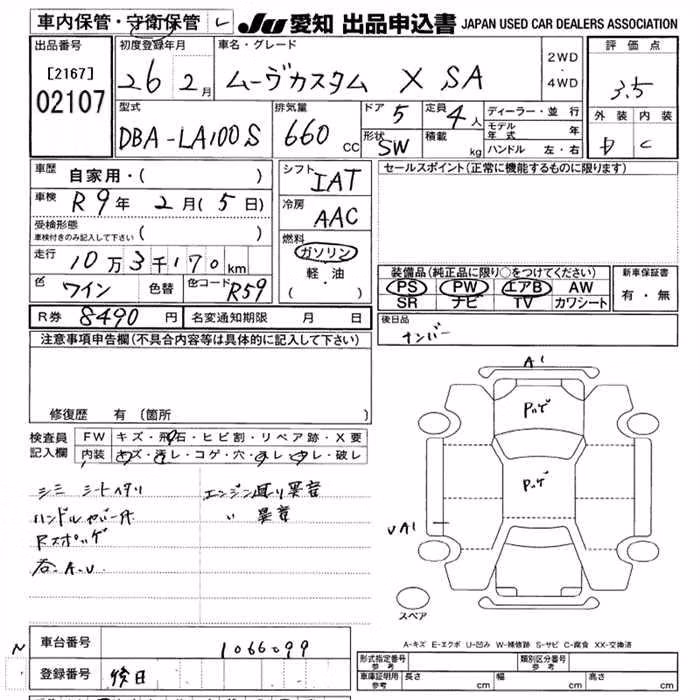 車内保管・守衛保管 レ JU 愛知 出品申込書 JAPAN USED CAR DEALERS ASSOCIATION
出品番号
[2167]
02107
初度登録年月
26 2月
車名・グレード
ムーヴカスタム X SA
2WD
・
4WD
評価点
3.5
外装 内装
D C
型式
DBA-LA100S
排気量
660 cc
ドア
5
形状
SW
定員
4人
積載
kg
ディーラー・並行
モデル年式 年
ハンドル 左・右
車歴 自家用・( )
車検 R9年 2月(5日)
受検形態
車検付きのみ記入して下さい ( )
走行 10万3千170km
色 ワイン 色替 色コード R59
シフト
IAT
冷房
AAC
燃料
ガソリン
軽・油
( ・ )
セールスポイント(正常に機能するものに限ります)
装備品(純正品に限り○をつけてください)
PS PW エアB AW
SR ナビ TV カワシート
新車保証書
有・無
R券 8490円 名変通知期限 月 日
後日品
ナンバー
注意事項申告欄(不具合内容等は具体的に記入して下さい)
修復歴 有 (箇所 )
検査員
記入欄
FW キズ・飛石・ヒビ割・リペア跡・X要
内装 キズ・汚レ・コゲ・穴・スレ・切レ・破レ
シミ シートヘタリ
ハンドルカバー付
Rスポッゲ
各A.U
エンジン廻り異音
〃 異音
A1
Pハゲ
Pハゲ
UA1
スペア
A-キズ E-エクボ U-凹み W-補修跡 S-サビ C-腐食 XX-交換済
N
車台番号 1066099
登録番号 後日
形式指定番号
参考
類別区分番号
参考
車庫証明用
参考
長さ cm 幅 cm 高さ cm